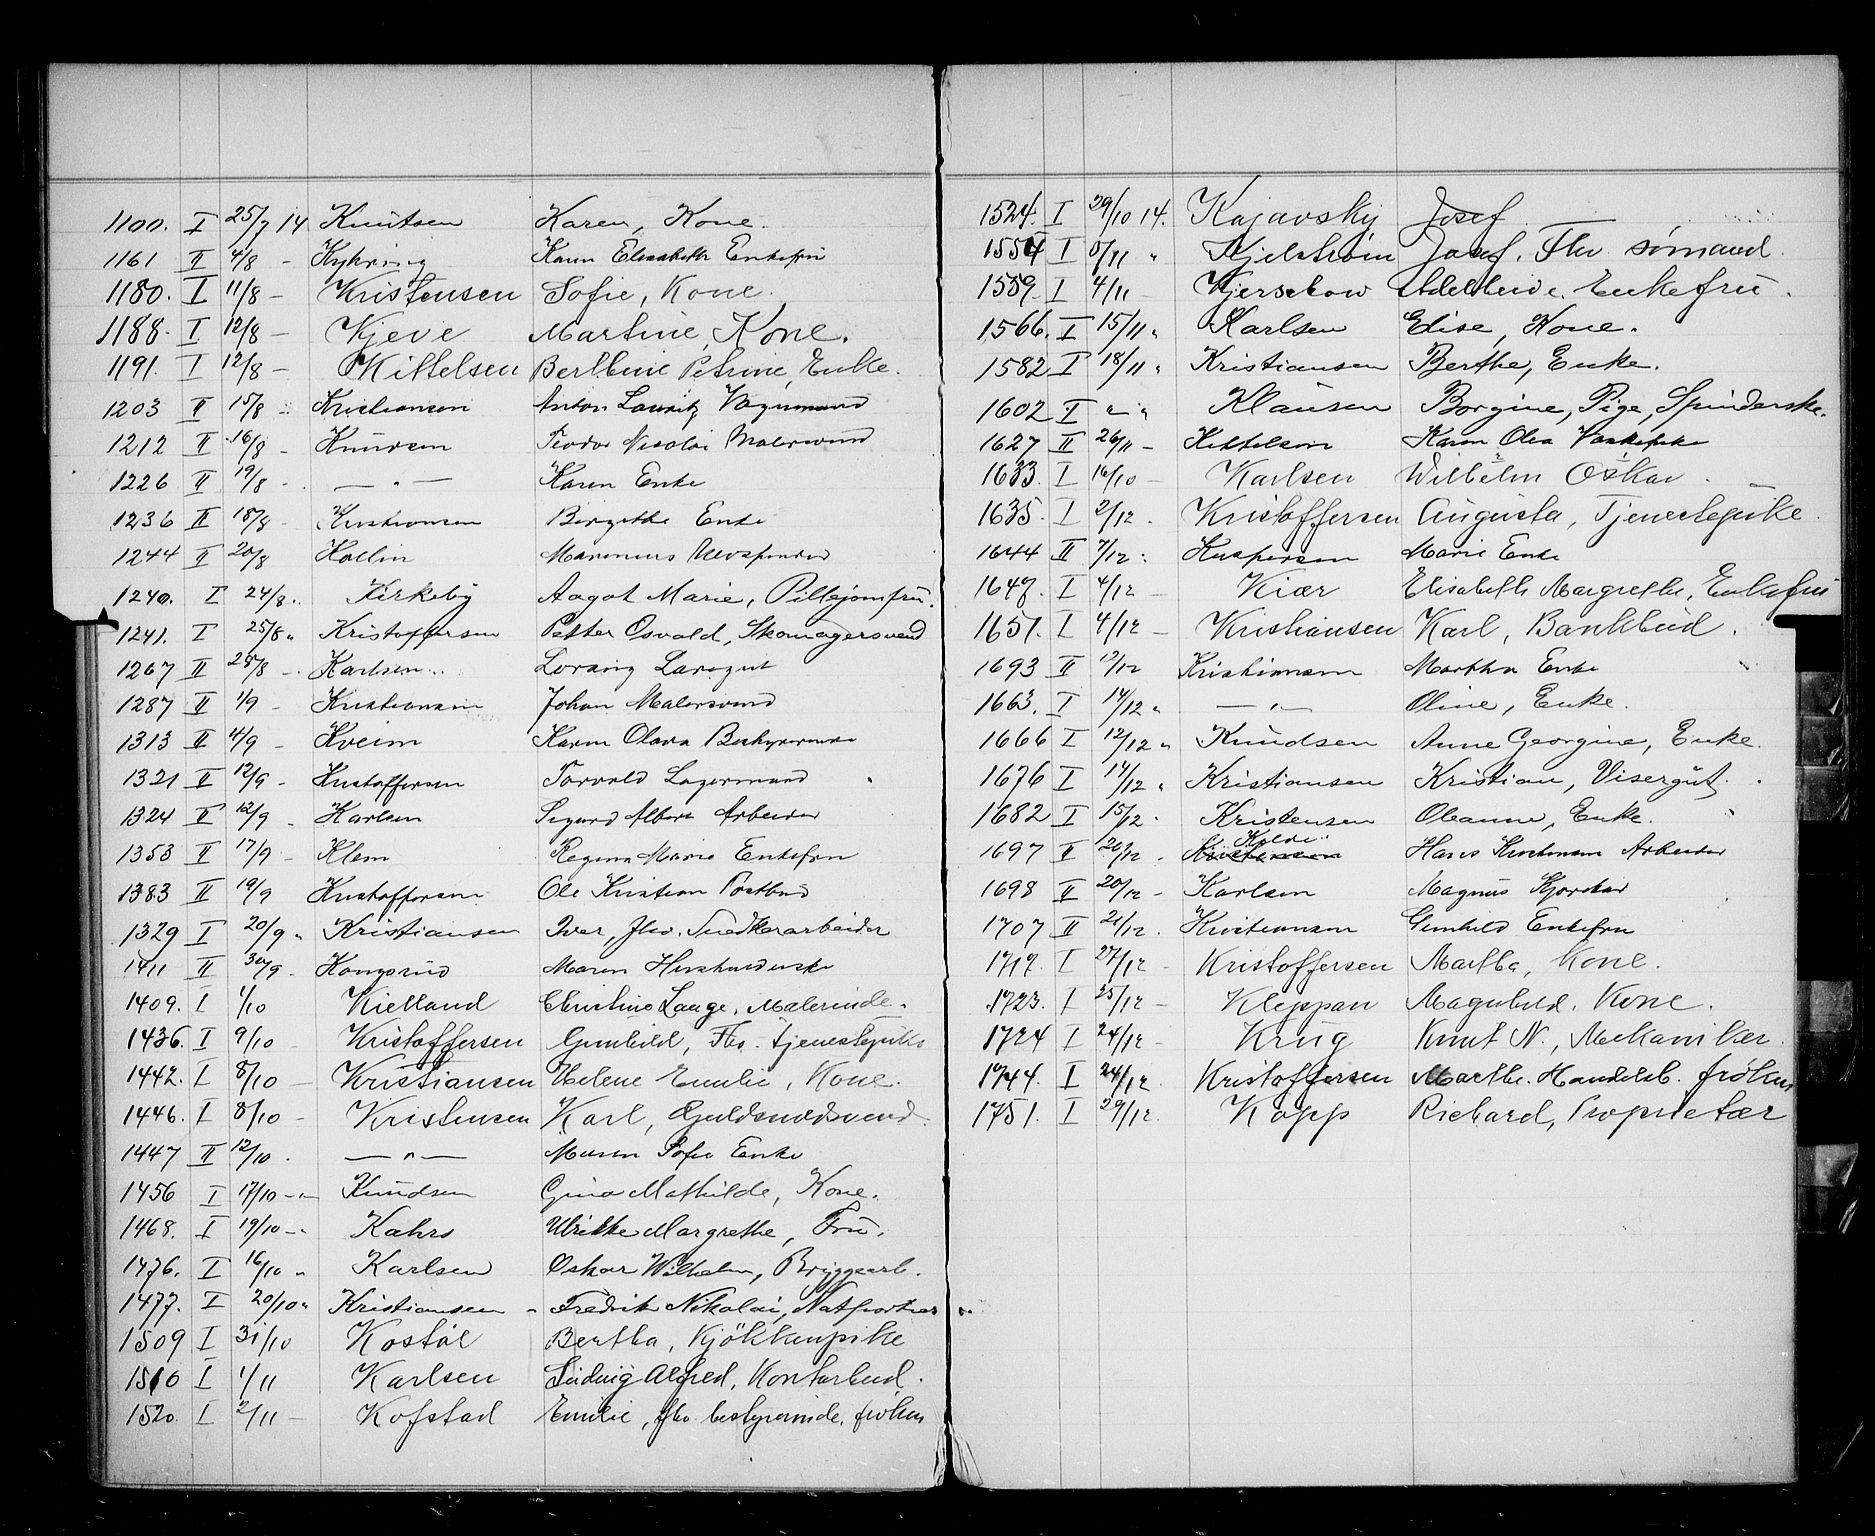 1100. I 25/7 14 Knutsen Karen, Kone.
1161 II 4/8 - Kyhring Karen Elisabeth Enkefru
1180. I 11/8 - Kristensen Sofie, Kone.
1188. I 12/8 - Kjeve Martine, Kone.
1191. I 12/8 - Kittelsen Berthine Petrine, Enke.
1203 II 15/8 - Kristiansen Anton Lauritz Vognmand
1212 II 16/8 - Knudsen Teodor Nicolai Malersvend
1226 II 19/8 - — " — Karen Enke
1236 II 18/8 - Kristiansen Bergithe Enke
1244 II 20/8 Kollin Marenius
1240. I 24/8 " Kirkeby Aagot Marie, Pillejomfru.
1241. I 25/8 " Kristoffersen Petter Osvald, Skomagersvend
1267 II 28/8 - Karlsen
1287 II 1/9 - Kristiansen Johan Malersvend
1313 II 4/9 - Kveim Karen Olava Bestyrerinde
1321 II 12/9 - Kristoffersen Torvald Lagermand
1324 II 12/9 - Karlsen Sigurd Albert Arbeider
1353 II 17/9 - Klem Regine Marie Enkefru
1383 II 19/9 Kristoffersen Ole Kristian Postbud
1329 I 20/9 " Kristiansen Iver, fhv. Snedkerarbeider
1411 II 30/9 - Kongsrud Maren Husholderske
1409. I 1/10 Kielland Christine Lange, Malerinde.
1436. I 9/10 - Kristoffersen Gunhild, Fhv. tjenestepike
1442. I 8/10 - Kristiansen Helene Emilie, Kone.
1446. I 8/10 - Kristensen Karl, Guldsmedsvend.
1447 II 12/10 - — " — Maren Sofie Enke
1456 I 17/10 - " Knudsen Gina Mathilde, Kone.
1468. I 19/10 - " Kahrs Ulrikke Margrethe, Fru.
1476. I 16/10 " Karlsen Oskar Wilhelm, Bryggearb.
1477. I 20/10 " Kristiansen - Fredrik Nikolai, Natportier
1509 I 31/10 Kostøl Bertha, Kjökkenpike
1510 I 1/11 Karlsen Ludvig Alfred, Kontorbud.
1520. I 2/11 - Kofstad Emilie, fhv. bestyrerinde, frøken
1524. I 29/10 14. Kajavsky Josef
1554 I 5/11 " Kjelstrøm Josef, Fhv sømand.
1559. I 4/11 - Kjerschow Adelheide, Enkefru.
1566. I 15/11 " Karlsen Elise, Kone.
1582 I 18/11 " Kristiansen Berthe, Enke.
1602 I " - " Klausen Borgine, Pige, Spinderske.
1627 II 26/11 - Kittelsen Karen Olea Vaskepike
1633. I 16/10 - Karlsen Wilhelm Oskar
1635. I 2/12 - Kristoffersen Augusta, Tjenestepike.
1644 II 7/12 - Kaspersen Marie Enke
1647. I 4/12 - Kiær Elisabeth Margrethe, Enkefru
1651. I 4/12 - Kristiansen Karl, Bankbud.
1693 II 17/12 Kristiansen Martha Enke
1663. I 14/12 " — " — Oline, Enke.
1666 I 12/12 " Knudsen Anne Georgine, Enke.
1676 I 14/12 " Kristiansen Kristian, Visergut.
1682 I 15/12 - Kristensen Oleanne, Enke.
1697 II 20/12 - Kristensen Hans Kristiansen Arbeider
1698 II 20/12 - Karlsen Magnus
1707 II 21/12 - Kristiansen Gunhild Enkefru
1717. I 27/12 - Kristoffersen Martha, Kone.
1723. I 25/12 - Kleppan Magnhild, Kone.
1724 I 24/12 - Krug Knut N., Mekaniker.
1744. I 24/12 Kristoffersen Marthe. Handelsb. frøken
1751. I 29/12. Kopp Richard, Proprietær